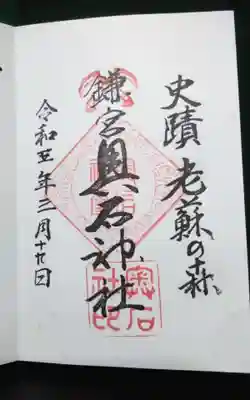 史蹟 老蘇の森
鎌宮奥石神社
奥石
社印
令和五年三月十九日